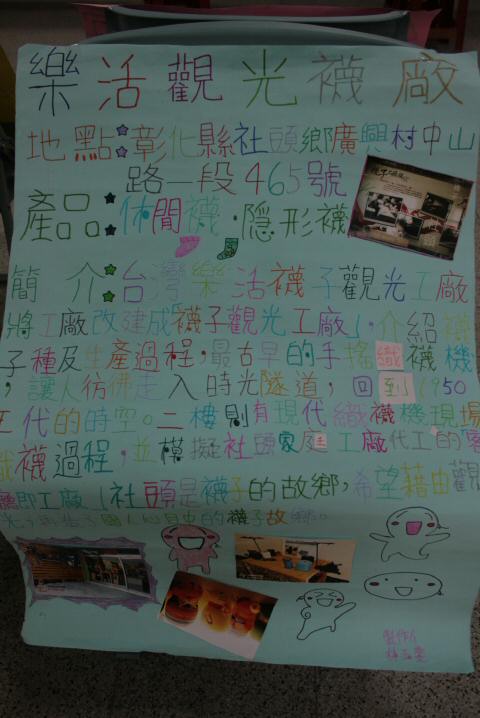 樂活觀光襪廠
地點:彰化縣社頭鄉廣興村中山
路一段465號
產品:休閒襪.隱形襪
簡介:台灣樂活襪子觀光工廠
將工廠改建成「襪子觀光工廠」,介紹襪
子種及生產過程,最古早的手搖織襪機
,讓人彷彿走入時光隧道,回到1950
年代的時空。二樓則有現代織襪機現場
織襪過程,並模擬社頭家庭工廠代工的客
廳即工廠!社頭是襪子的故鄉,希望藉由觀
光 國人心目中的襪子故鄉。
製作人